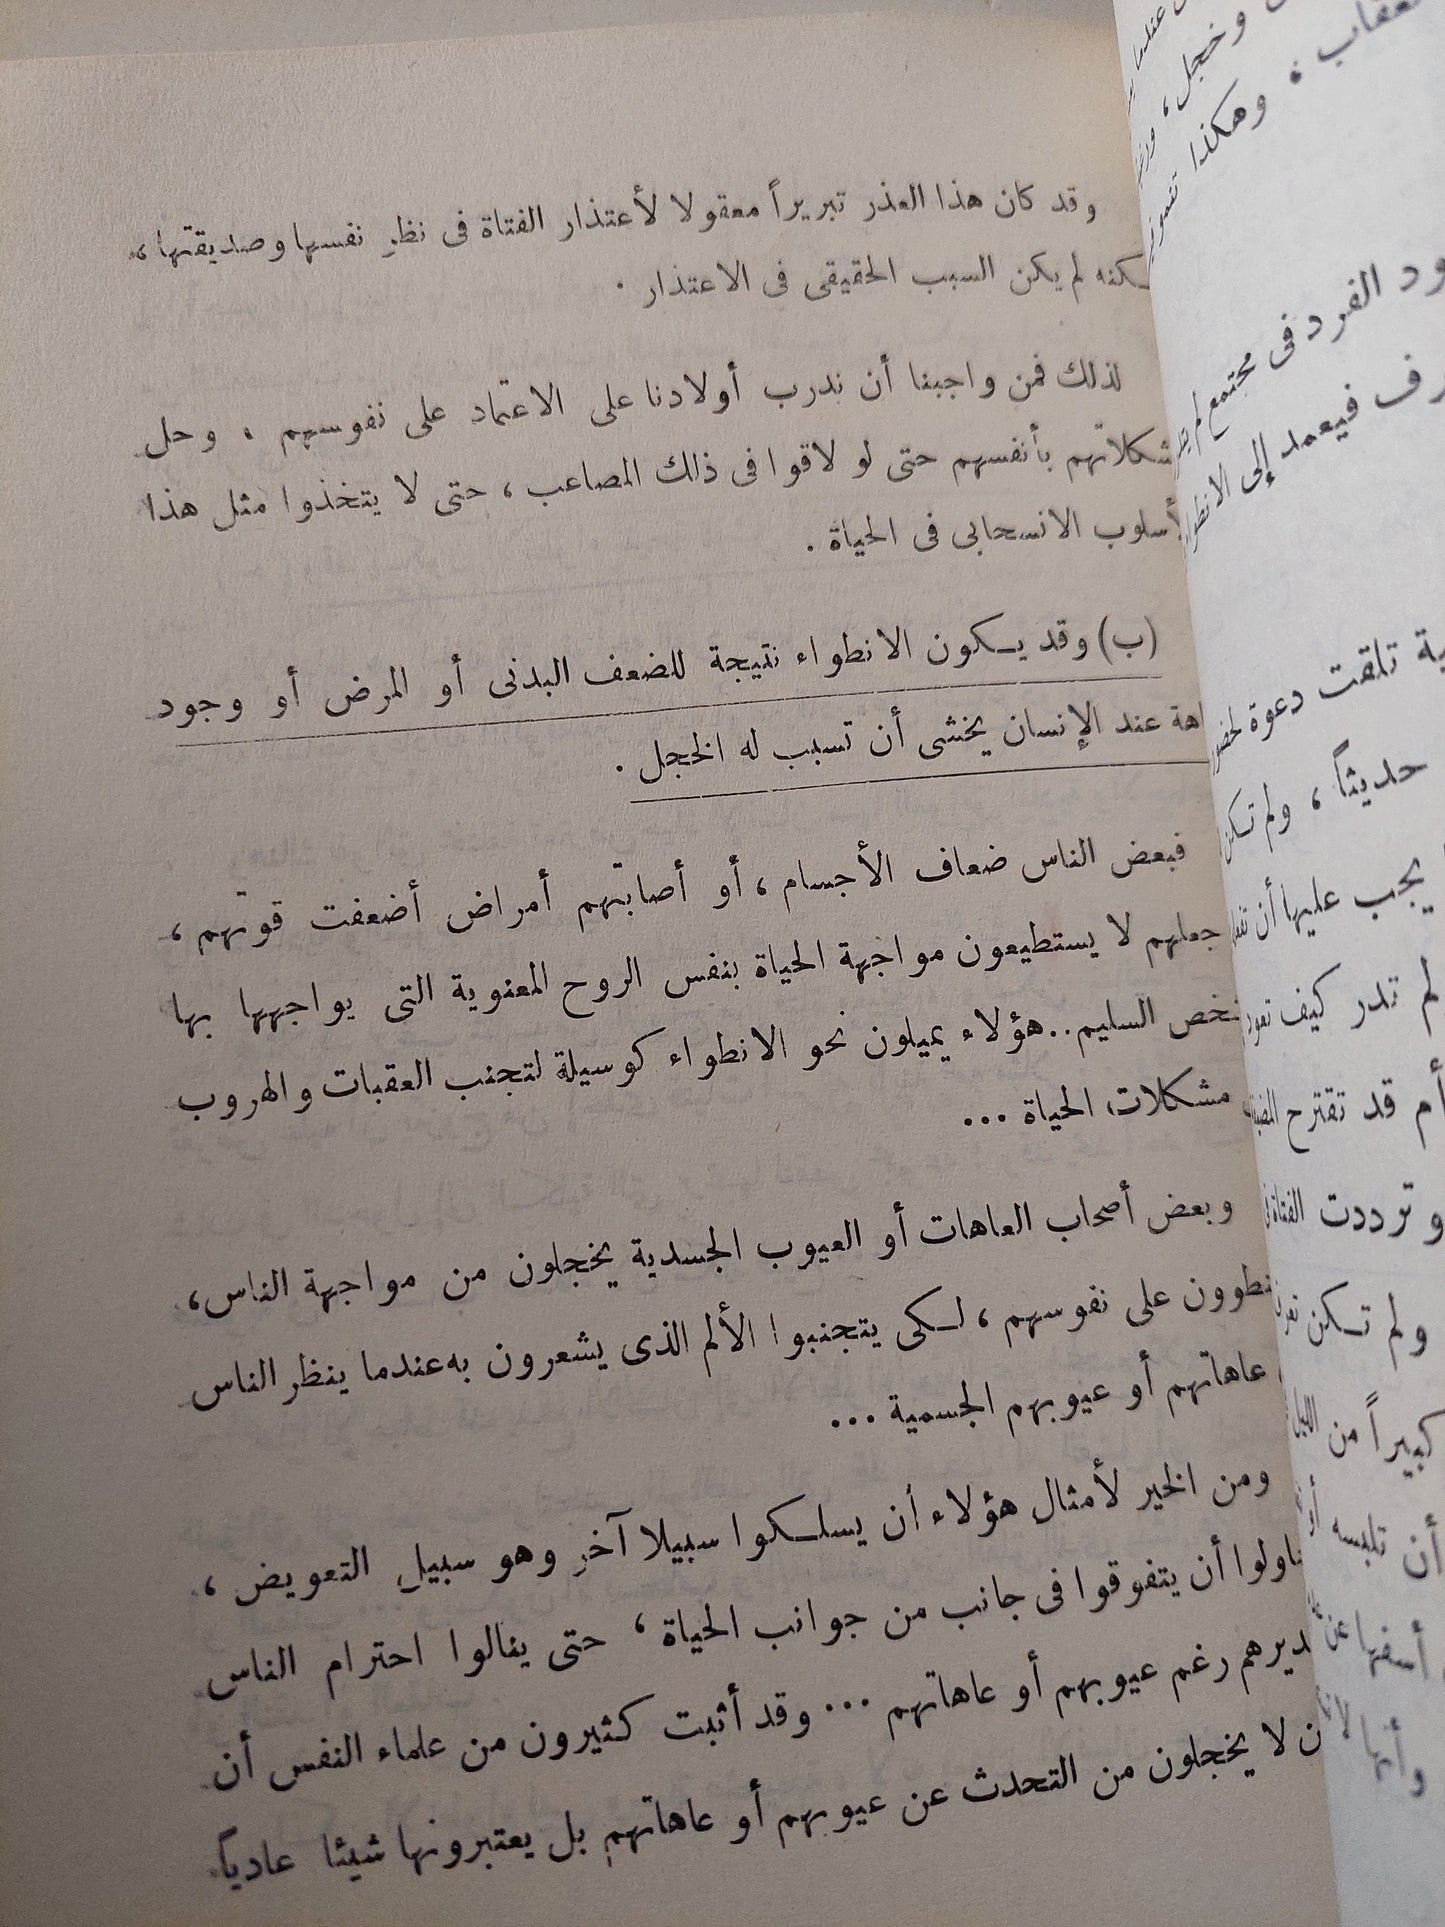 وقد كان هذا العذر تبريراً معقولا لأعتذار الفتاة فى نظر نفسها وصديقتها ،
لم يكن السبب الحقيقى فى الاعتذار .
لذلك فمن واجبنا أن ندرب أولادنا على الاعتماد على نفوسهم ، وحل
بأنفسهم حتى لو لاقوا فى ذلك المصاعب ، حتى لا يتخذوا مثل هذا
الانسحابى فى الحياة .
(ب) وقد يكون الانطواء نتيجة للضعف البدنى أو المرض أو وجود
عند الإنسان يخشى أن تسبب له الخجل .
فبعض الناس ضعاف الأجسام ، أو أصابتهم أمراض أضعفت قوتهم ،
جعلهم لا يستطيعون مواجهة الحياة بنفس الروح المعنوية التى يواجهها بها
السليم .. هؤلاء يميلون نحو الانطواء كوسيلة لتجنب العقبات والهروب
مشكلات الحياة ...
وبعض أصحاب العاهات أو العيوب الجسدية يخجلون من مواجهة الناس ،
على نفوسهم ، لكى يتجنبوا الألم الذى يشعرون به عندما ينظر الناس
عاهاتهم أو عيوبهم الجسمية ...
ومن الخير لأمثال هؤلاء أن يسلكوا سبيلا آخر وهو سبيل التعويض ،
أن يتفوقوا فى جانب من جوانب الحياة ، حتى ينالوا احترام الناس
رغم عيوبهم أو عاهاتهم ... وقد أثبت كثيرون من علماء النفس أن
لا يخجلون من التحدث عن عيوبهم أو عاهاتهم بل يعتبرونها شيئا عادياً
وخجل ،
، وهكذا
الفرد فى مجتمع لم
فيعمد إلى
تلقت دعوة
حديثاً ، ولم
يجب عليها أن
لم تدر كيف
أم قد تقترح
وترددت الفتاة
ولم تكن
كبيراً من الليل
أن تلبسه أو
أسفها عن
وأنها لا